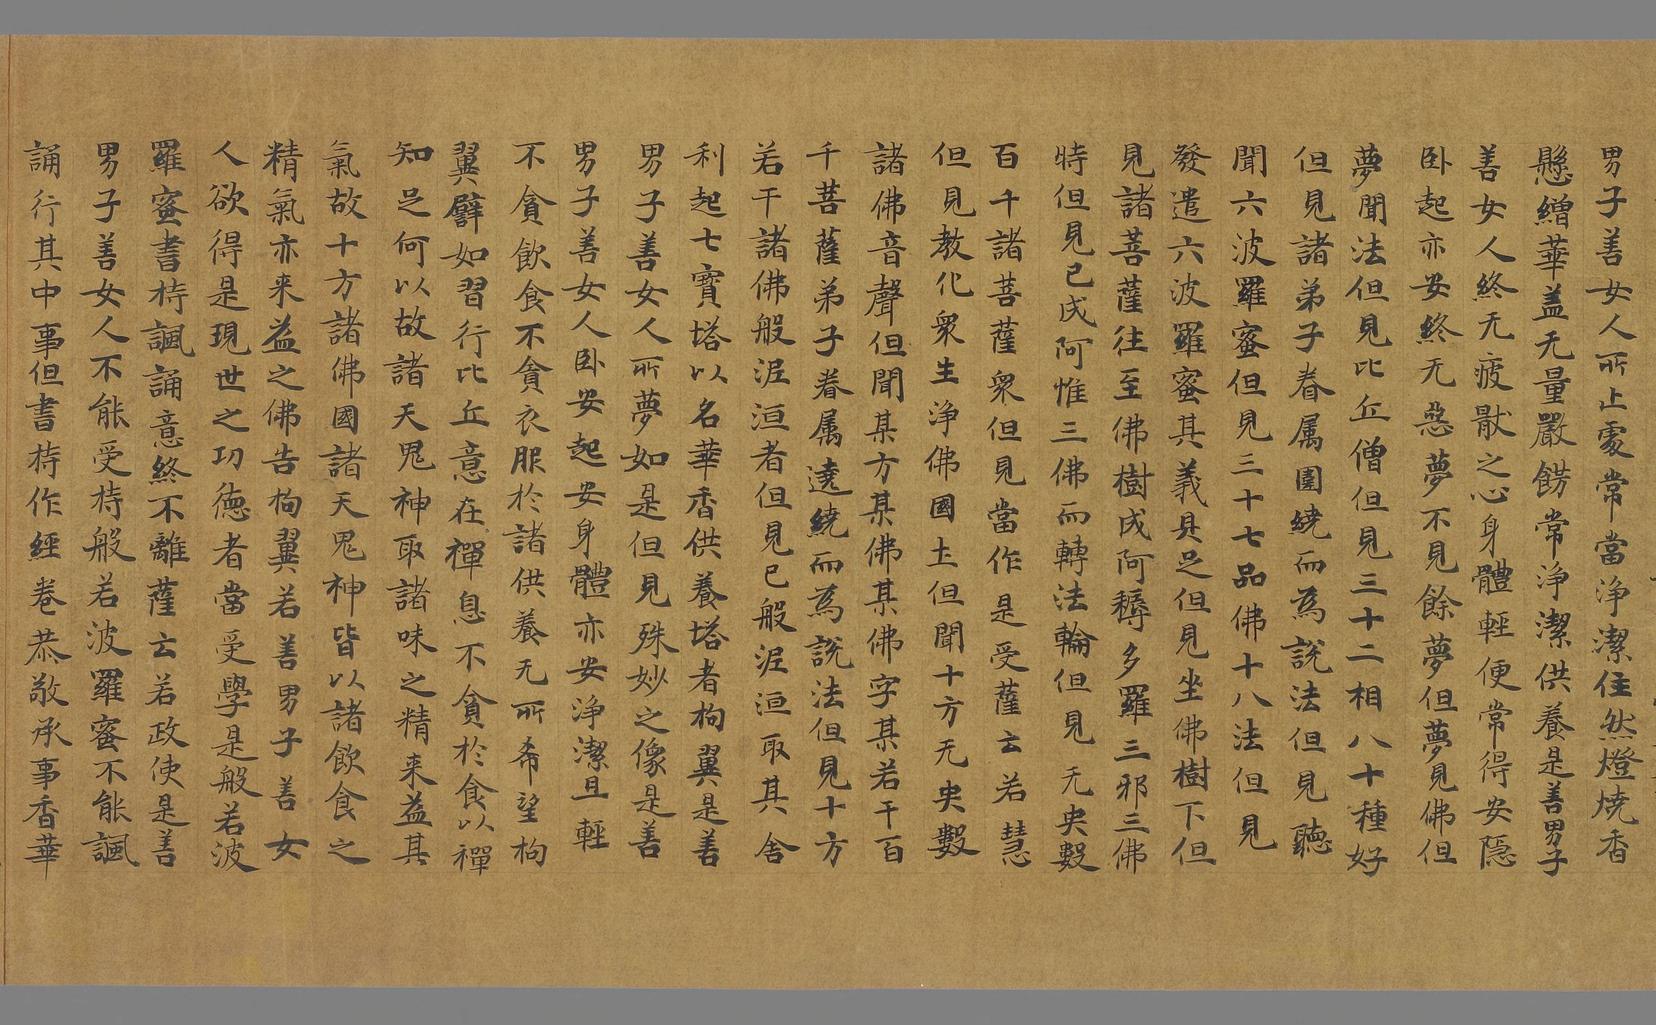 男子善女人所止處常當淨潔住然燈燒香
懸繒華盖无量嚴餝常淨潔供養是善男子
善女人終无疲猒之心身體輕便常得安隱
卧起亦安終无惡夢不見餘夢但夢見佛但
夢聞法但見比丘僧但見三十二相八十種好
但見諸弟子眷属圍繞而為說法但見聽
聞六波羅蜜但見三十七品佛十八法但見
發遣六波羅蜜其義具足但見坐佛樹下但
見諸菩薩往至佛樹成阿耨多羅三耶三佛
時但見已成阿惟三佛而轉法輪但見无央數
百千諸菩薩衆但見當作是受薩云若慧
但見教化衆生淨佛國土但聞十方无央數
諸佛音聲但聞某方某佛某佛字某若干百
千菩薩弟子眷属遶繞而為說法但見十方
若干諸佛般泥洹者但見已般泥洹取其舍
利起七寶塔以名華香供養塔者拘翼是善
男子善女人所夢如是但見殊妙之像是善
男子善女人卧安起安身體亦安淨潔且輕
不貪飲食不貪衣服於諸供養无所希望拘
翼譬如習行比丘意在禪息不貪於食以禪
知足何以故諸天鬼神取諸味之精来益其
氣故十方諸佛國諸天鬼神皆以諸飲食之
精氣亦来益之佛告拘翼若善男子善女
人欲得是現世之功德者當受學是般若波
羅蜜書持諷誦意終不離薩云若政使是善
男子善女人不能受持般若波羅蜜不能諷
誦行其中事但書持作經卷恭敬承事香華